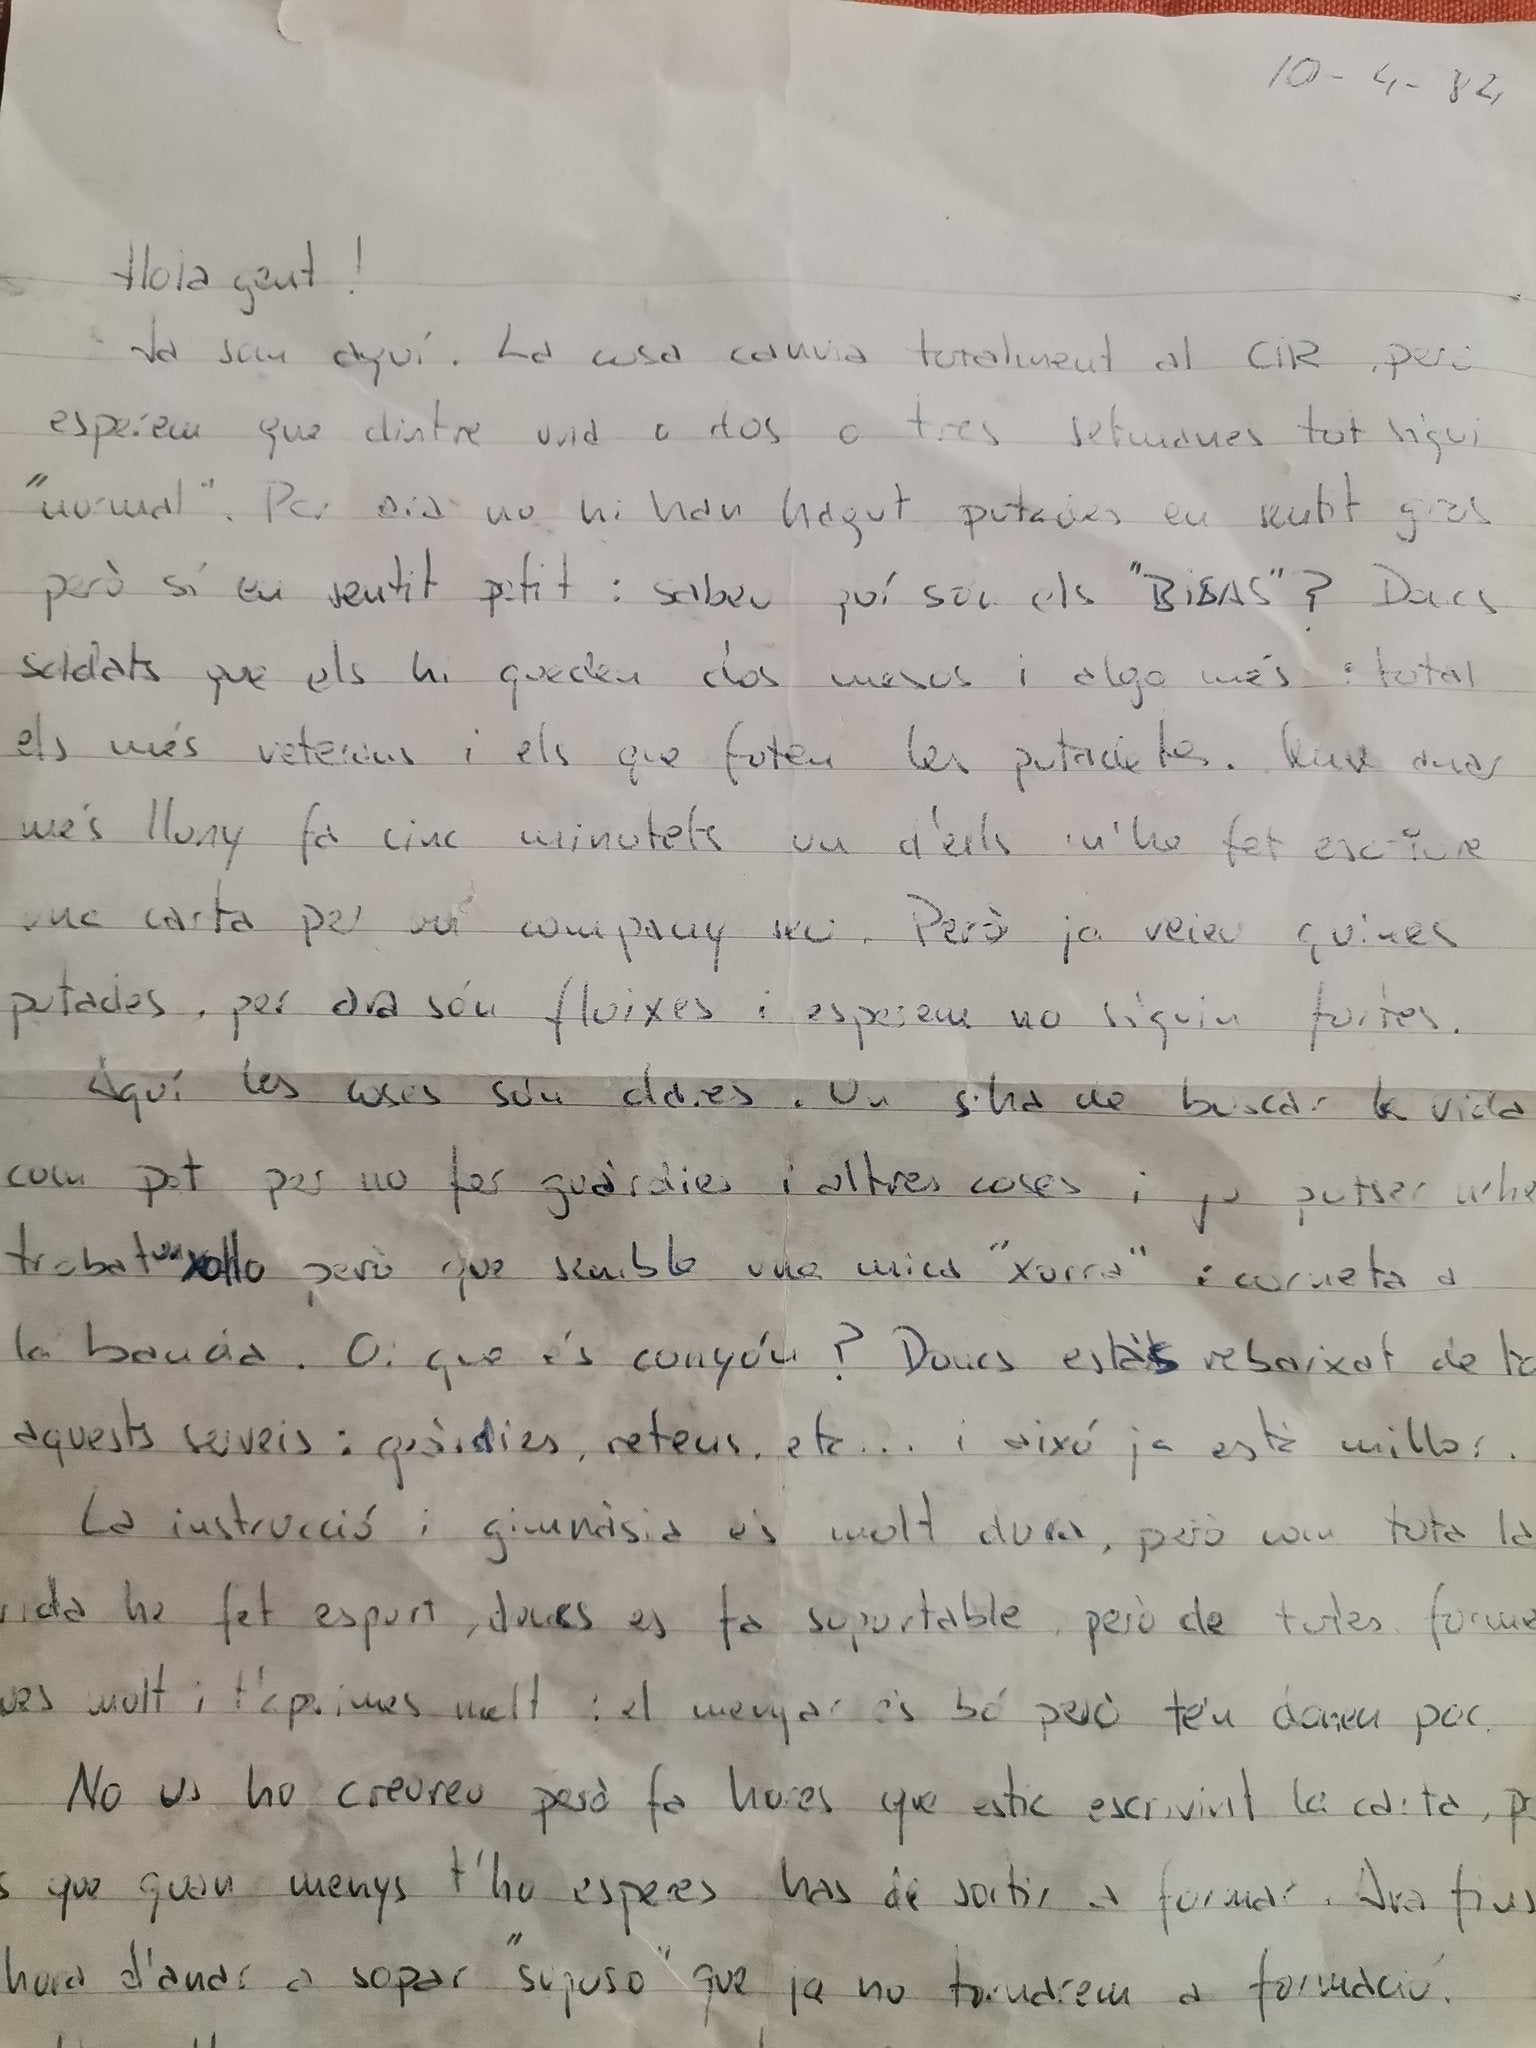 10-4-82
Hola gent!
Ja som aquí. La cosa canvia totalment al CIR, però
esperem que dintre una o dos o tres setmanes tot sigui
"normal". Per ara no hi han hagut putades en sentit gros
però sí en sentit petit: sabeu quí són els "BISAS"? Doncs
soldats que els hi queden dos mesos i algo més: total
els més veterans i els que foten les putadetes. Sense anar
més lluny fa cinc minutets un d'ells m'ha fet escriure
una carta per un company seu. Però ja veieu quines
putades, per ara són fluixes i esperem no siguin fortes.
Aquí les coses són clares. Un s'ha de buscar la vida
com pot per no fer guàrdies i altres coses i jo potser m'he
trobat un xollo però que sembla una mica "xorra": corneta a
la banda. Oi que és conyón? Doncs estàs rebaixat de to
aquests serveis: guàrdies, retens, etc... i aixó ja està millor.
La instrucció i gimnàsia és molt dura, però com tota la
vida he fet esport, doncs es fa suportable, però de totes forme
molt i t'aprimes molt: el menjar és bó però te'n donen poc.
No us ho creureu però fa hores que estic escrivint la carta, p
s que quan menys t'ho esperes has de sortir a formar. Ara fins
hora d'anar a sopar "suposo" que ja no tornarem a formació.